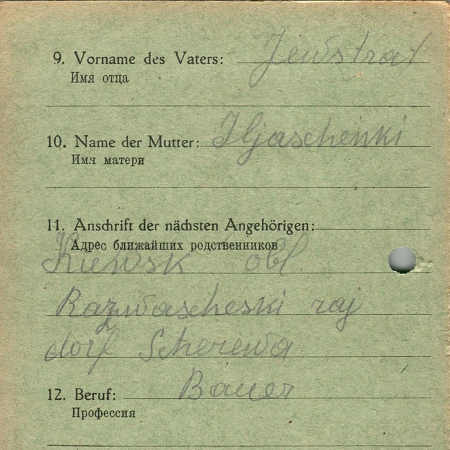 9. Vorname des Vaters: Jewstrat
Имя отца
10. Name der Mutter: Iljaschenki
Имя матери
11. Anschrift der nächsten Angehörigen:
Адрес ближайших родственников
Kiewsk obl
Razwascheski raj
dorf Scherewa
12. Beruf: Bauer
Профессия